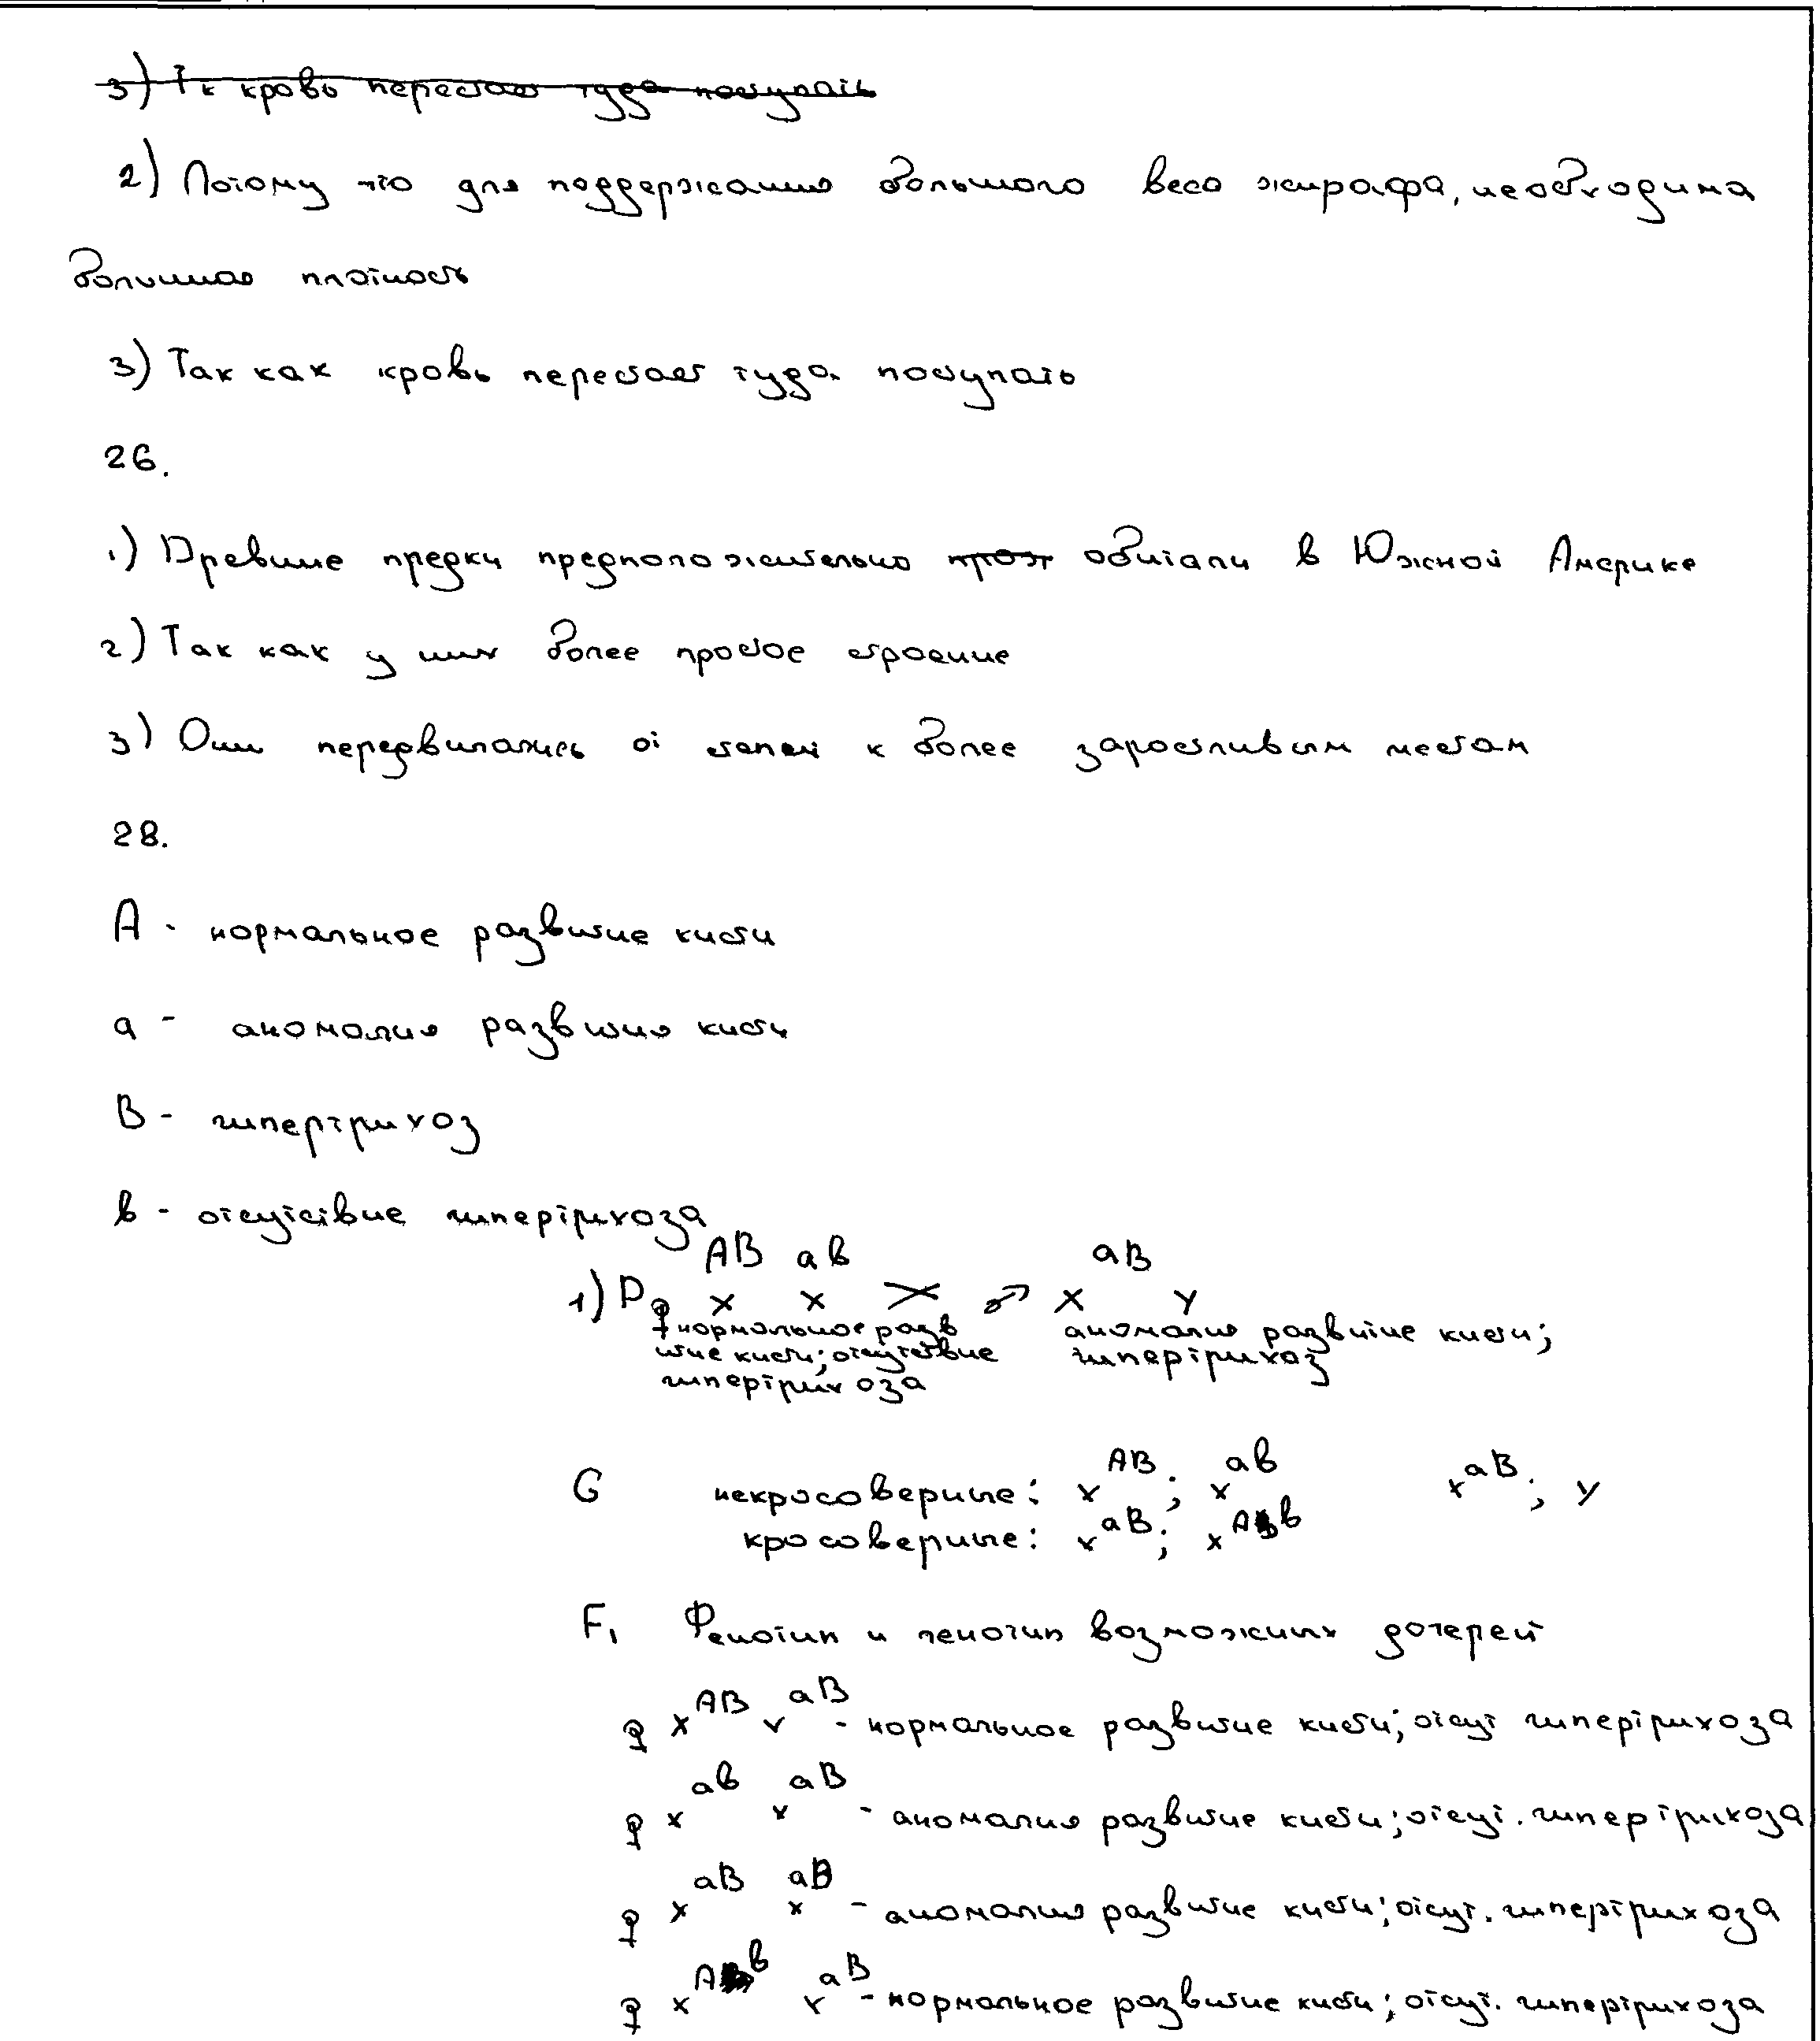 3) Тк кровь перестает туда поступать
2) Потому что для поддержания большого веса жирафа, необходима
большая плотность
3) Так как кровь перестает туда поступать
26.
1) Древние предки предположительно прож обитали в Южной Америке
2) Так как у них более простое строение
3) Они передвигались от степей к более заростливым местам
28.
A - нормальное развитие кисти
a - аномалия развития кисти
B - гипертрихоз
b - отсутствие гипертрихоза
1) P ♀ X^AB X^ab × ♂ X^aB Y
нормальное разв аномалия развитие кисти;
итие кисти; отсутствие гипертрихоз
гипертрихоза
G некросоверные: X^AB; X^ab X^aB; Y
кросоверные: X^aB; X^Ab
F1 Фенотип и генотип возможных дотерей
♀ X^AB X^aB - нормальное развитие кисти; отсут гипертрихоза
♀ X^ab X^aB - аномалия развитие кисти; отсут. гипертрихоза
♀ X^aB X^aB - аномалия развитие кисти; отсут. гипертрихоза
♀ X^Ab X^aB - нормальное развитие кисти; отсут. гипертрихоза